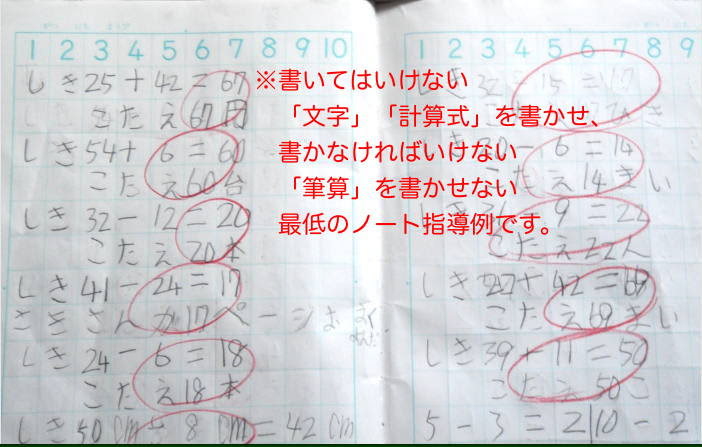 1 2 3 4 5 6 7 8 9 10
しき25+42=67
こたえ67円
しき54+6=60
こたえ60台
しき32-12=20
こたえ20本
しき41-24=17
さきさんが17ページ
しき24-6=18
こたえ18本
しき50cm 8cm=42cm
※書いてはいけない
「文字」「計算式」を書かせ、
書かなければいけない
「筆算」を書かせない
最低のノート指導例です。
1 2 3 4 5 6 7 8 9
15=17
6=14
こたえ14まい
9=22
こたえ22人
しき27+42=69
こたえ69まい
しき39+11=50
こたえ50こ
5-3=2 10-2